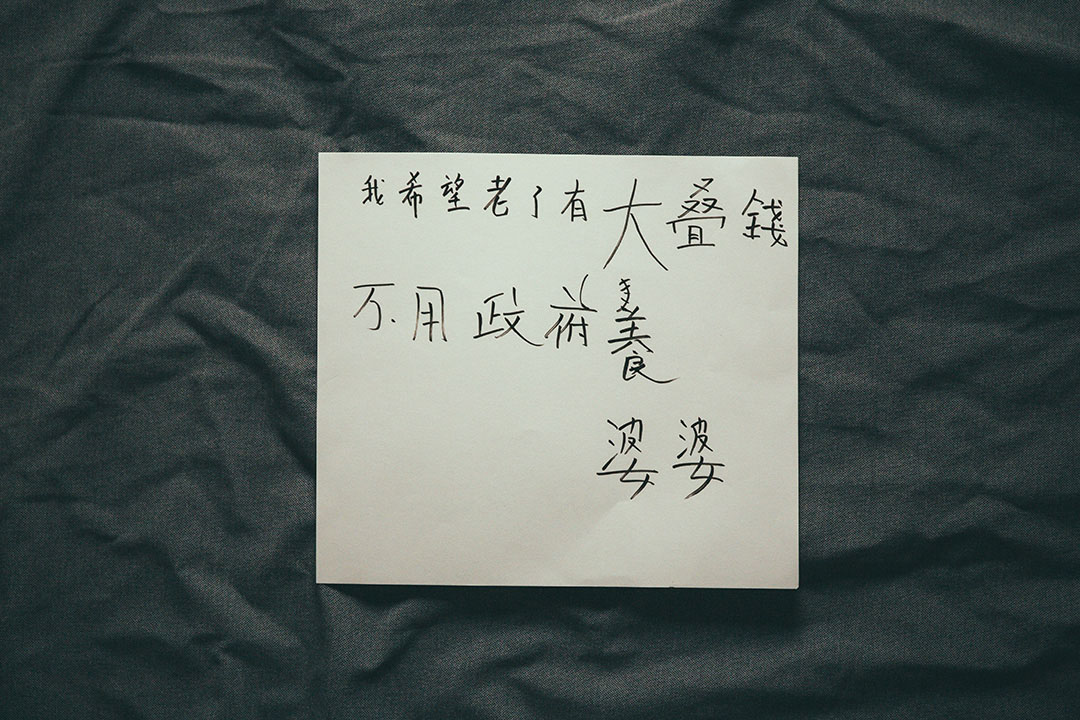 我希望老了有大叠錢
不用政府養
婆婆